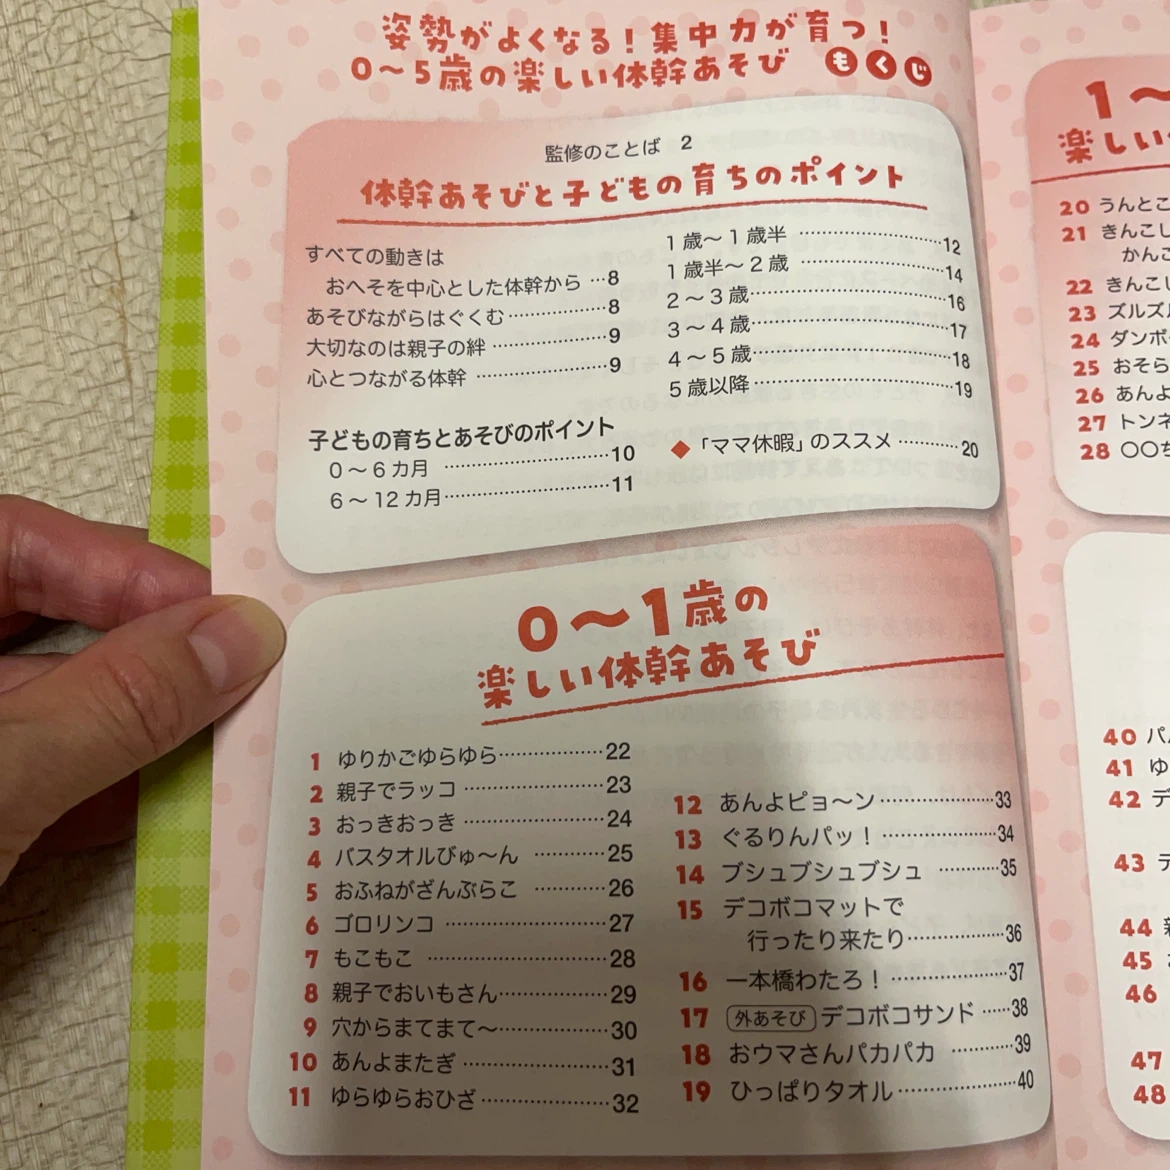 姿勢がよくなる！集中力が育つ！
0〜5歳の楽しい体幹あそび もくじ
監修のことば 2
体幹あそびと子どもの育ちのポイント
すべての動きは
おへそを中心とした体幹から…8
あそびながらはぐくむ…8
大切なのは親子の絆…9
心とつながる体幹…9
子どもの育ちとあそびのポイント
0〜6カ月…10
6〜12カ月…11
1歳〜1歳半…12
1歳半〜2歳…14
2〜3歳…16
3〜4歳…17
4〜5歳…18
5歳以降…19
◆「ママ休暇」のススメ…20
0〜1歳の
楽しい体幹あそび
1 ゆりかごゆらゆら…22
2 親子でラッコ…23
3 おっきおっき…24
4 バスタオルびゅ〜ん…25
5 おふねがざんぶらこ…26
6 ゴロリンコ…27
7 もこもこ…28
8 親子でおいもさん…29
9 穴からまてまて〜…30
10 あんよまたぎ…31
11 ゆらゆらおひざ…32
12 あんよピョ〜ン…33
13 ぐるりんパッ！…34
14 ブシュブシュブシュ…35
15 デコボコマットで
行ったり来たり…36
16 一本橋わたろ！…37
17 外あそび デコボコサンド…38
18 おウマさんパカパカ…39
19 ひっぱりタオル…40
1〜
楽しい
20 うんとこ
21 きんこし
かんこ
22 きんこし
23 ズルズル
24 ダンボ
25 おそら
26 あんよ
27 トンネ
28 〇〇ち
40 パ
41 ゆ
42 デ
43 デ
44 親
45
46
47
48